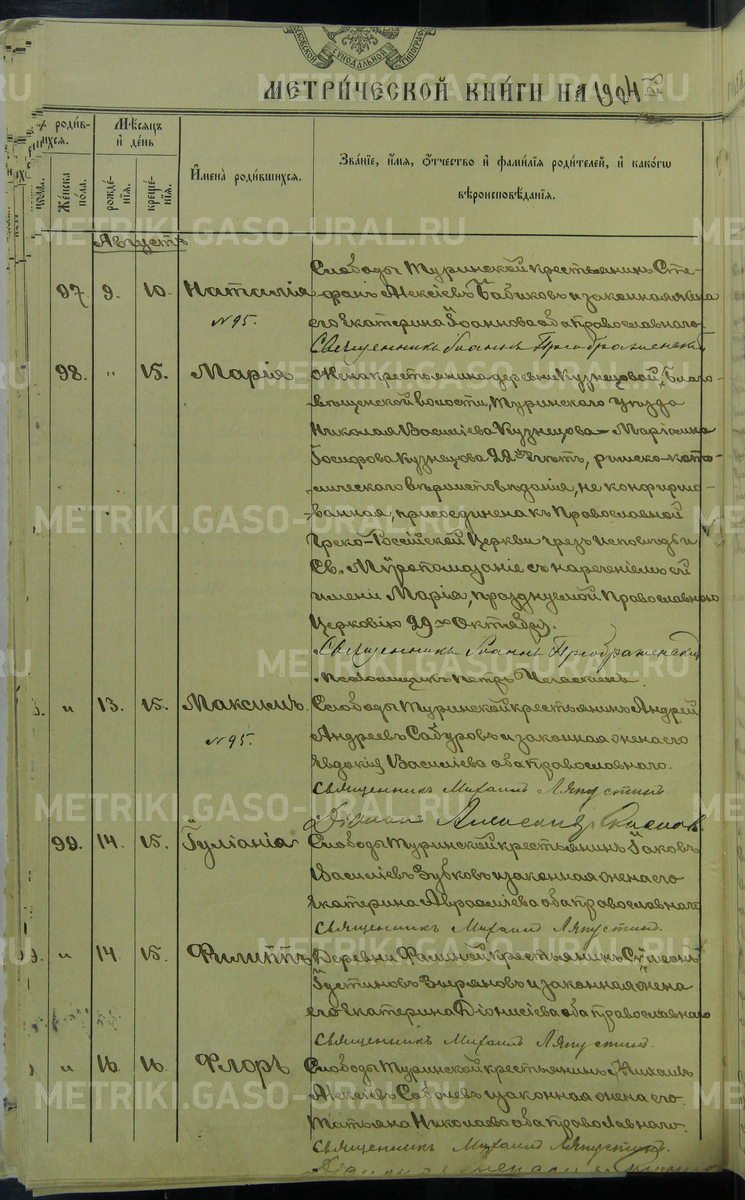 СѴНОДАЛЬНОЙ
МЕТРИ́ЧЕСКОЙ КНИ́ГИ НА 1904
роди́в-
шихся.
Мѣсяцъ
и де́нь
Имена роди́вшихся.
Зва́нїе, и́мя, о́тчество и фами́лїя роди́телей, и како́гѡ
вѣроисповѣ́данїя.
пола.
Же́нска
по́ла.
рожде́-
нїя.
креще́-
нїя.
Августъ
97. 9. 10. Наталія
№ 95.
Слободы Туринской крестьянинъ Сте-
фанъ Алексіевъ Бабиковъ и законная жена
его Екатерина Іоаннова оба православнаго.
Священникъ Іоаннъ Преображенскій
98. " 15. Марія
Жена крестьянина деревни Кузнецовой, Благо-
вѣщенской волости, Туринскаго уѣзда
Николая Василіева Кузнецова – Маріанна
Іосифова Кузнецова 22хъ лѣтъ, римско-като-
лическаго вѣроисповѣданія, не конфирмо-
ванная, присоединена къ Православной
Греко-Россійской Церкви чрезъ исповѣдь и
Св. Мѵропомазаніе съ нареченіемъ ей
имени Марія, празднуемой Православною
Церковію 29го Октября.
Священникъ Іоаннъ Преображенскій
Псаломщикъ Петръ
" 13. 15. Максимъ.
№ 95.
Слободы Туринской крестьянинъ Андрей
Андреевъ Сабуровъ и законная жена его
Евдокія Василіева оба православнаго.
Священникъ Михаилъ Ляпустинъ.
Діаконъ Александръ
99. 14. 15. Іуліанія
Слободы Туринской крестьянинъ Іаковъ
Василіевъ Зубковъ и законная жена его
Екатерина Авраамiева оба православнаго
Священникъ Михаилъ Ляпустинъ.
" 14. 15. Филиппъ
Деревни Фалиной крестьянинъ Сѵмеонъ
Іустиновъ Зыряновъ и законная жена
его Екатерина Діонисіева оба православнаго
Священникъ Михаилъ Ляпустинъ.
" 16 16 Флоръ
Слободы Туринской крестьянинъ Михаилъ
Алексіевъ Соболевъ и законная жена его
Татьяна Николаева оба православнаго.
Священникъ Михаилъ Ляпустинъ.
METRIKI.GASO-URAL.RU